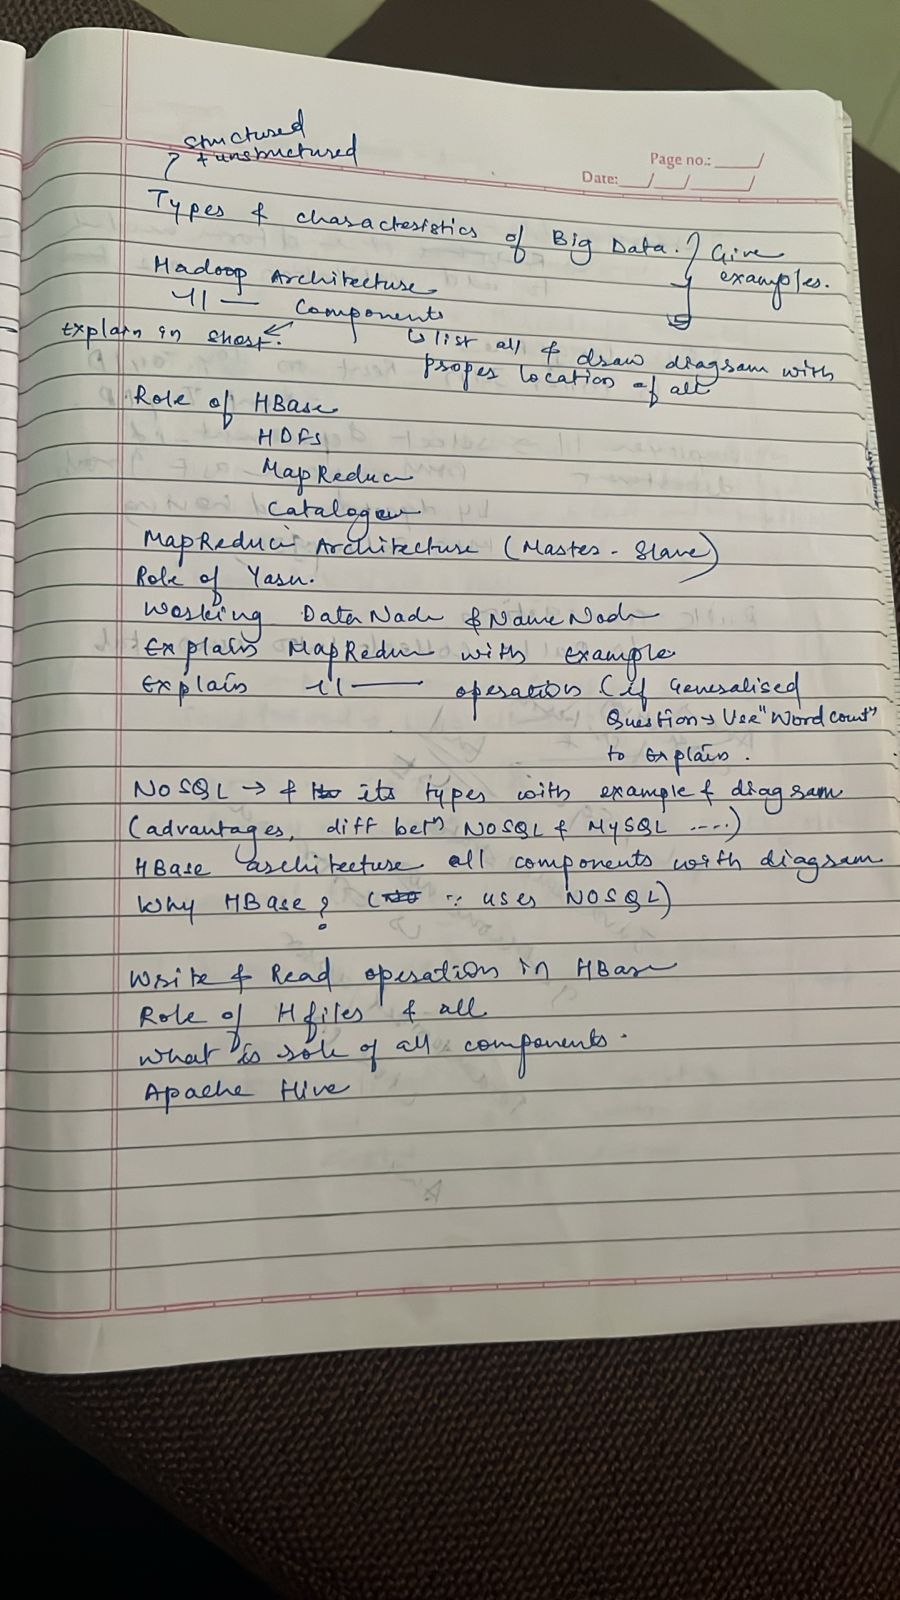 structured
+ unstructured
Page no.:
Date:
Types & characteristics of Big Data. } Give
examples.
Hadoop Architecture
-11- Components
Explain in short.
↳ list all & draw diagram with
proper location of all
Role of HBase
HDFS
MapReduce
Catalogue
MapReduce Architecture (Master - Slave)
Role of Yarn.
Working DataNode & NameNode
Explain MapReduce with example
Explain -11- operation (if Generalised
Question → Use "Word count"
to explain.
NoSQL → & its types with example & diagram
(advantages, diff betn NoSQL & MySQL ....)
HBase architecture all components with diagram
Why HBase? (∵ uses NOSQL)
Write & Read operation in HBase
Role of Hfiles & all
What is role of all components.
Apache Hive